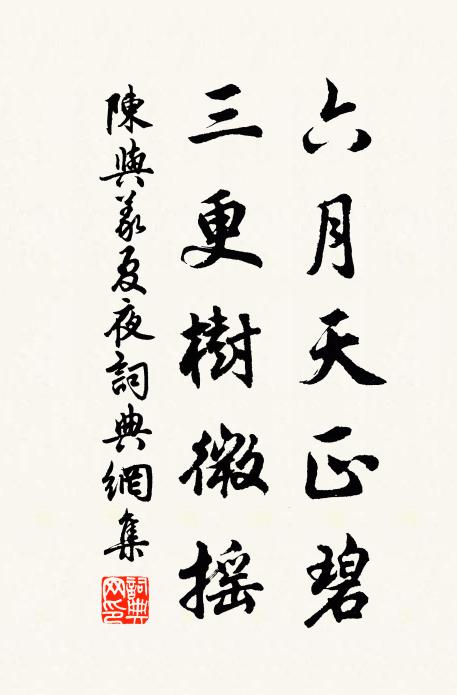 六月天正碧
三更樹微摇
陳與義夏夜詞典網集
詞典網印